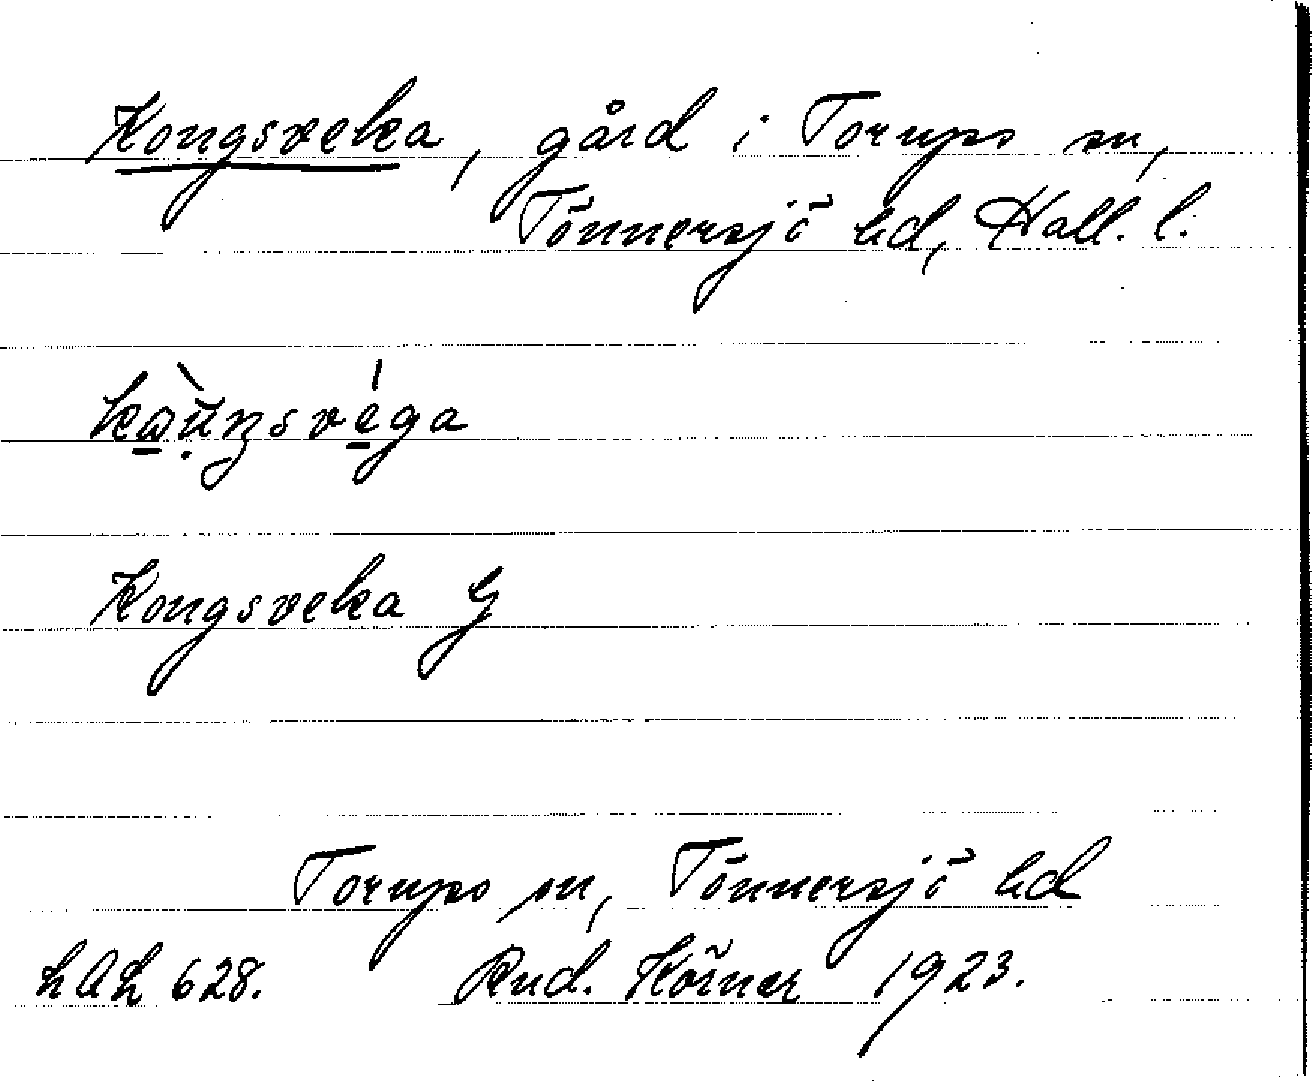 Kongsveka, gård i Torups sn,
Tönnersjö hd, Hall. l.
Kongsveka G
Torups sn, Tönnersjö hd
LAL 628. Rud. Körner 1923.